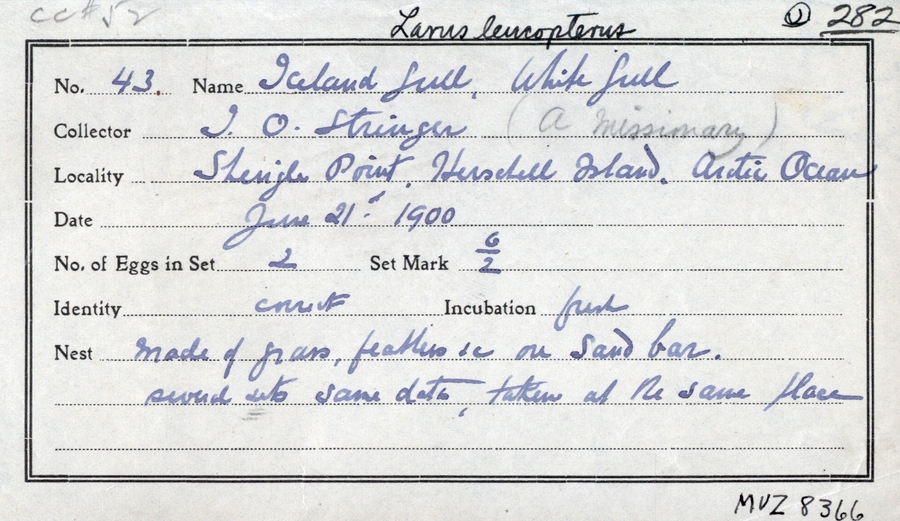 cc#52
Larus leucopterus
② 282
No. 43. Name Iceland Gull, White Gull
Collector I. O. Stringer (a missionary)
Locality Shingle Point, Herschell Island, Arctic Ocean
Date June 21st 1900
No. of Eggs in Set 2 Set Mark 6/2
Identity correct Incubation fresh
Nest made of grass, feathers &c on sand bar.
several sets same date, taken at the same place
MVZ 8366